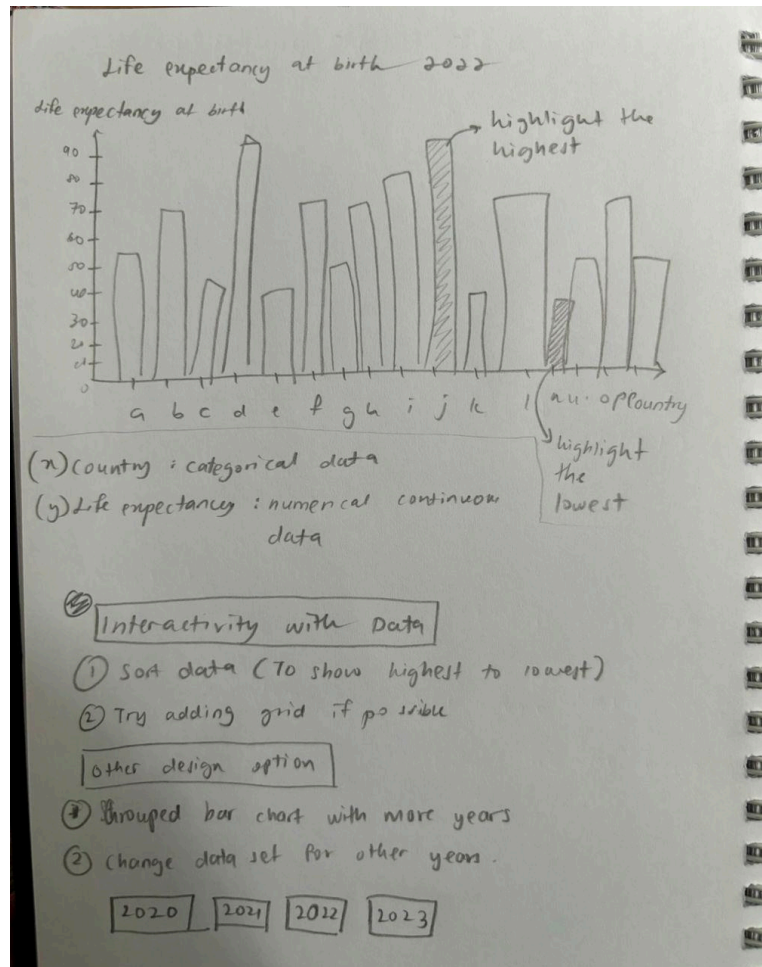 Life expectancy at birth 2022
Life expectancy at birth
highlight the
highest
90
80
70
60
50
40
30
20
0
a b c d e f g h i j k l Country
highlight
the
lowest
(x) Country : categorical data
(y) Life expectancy : numerical continuous
data
Interactivity with Data
① Sort data (To show highest to lowest)
② Try adding grid if possible
Other design option
Grouped bar chart with more years
② Change data set for other years.
2020 2021 2022 2023